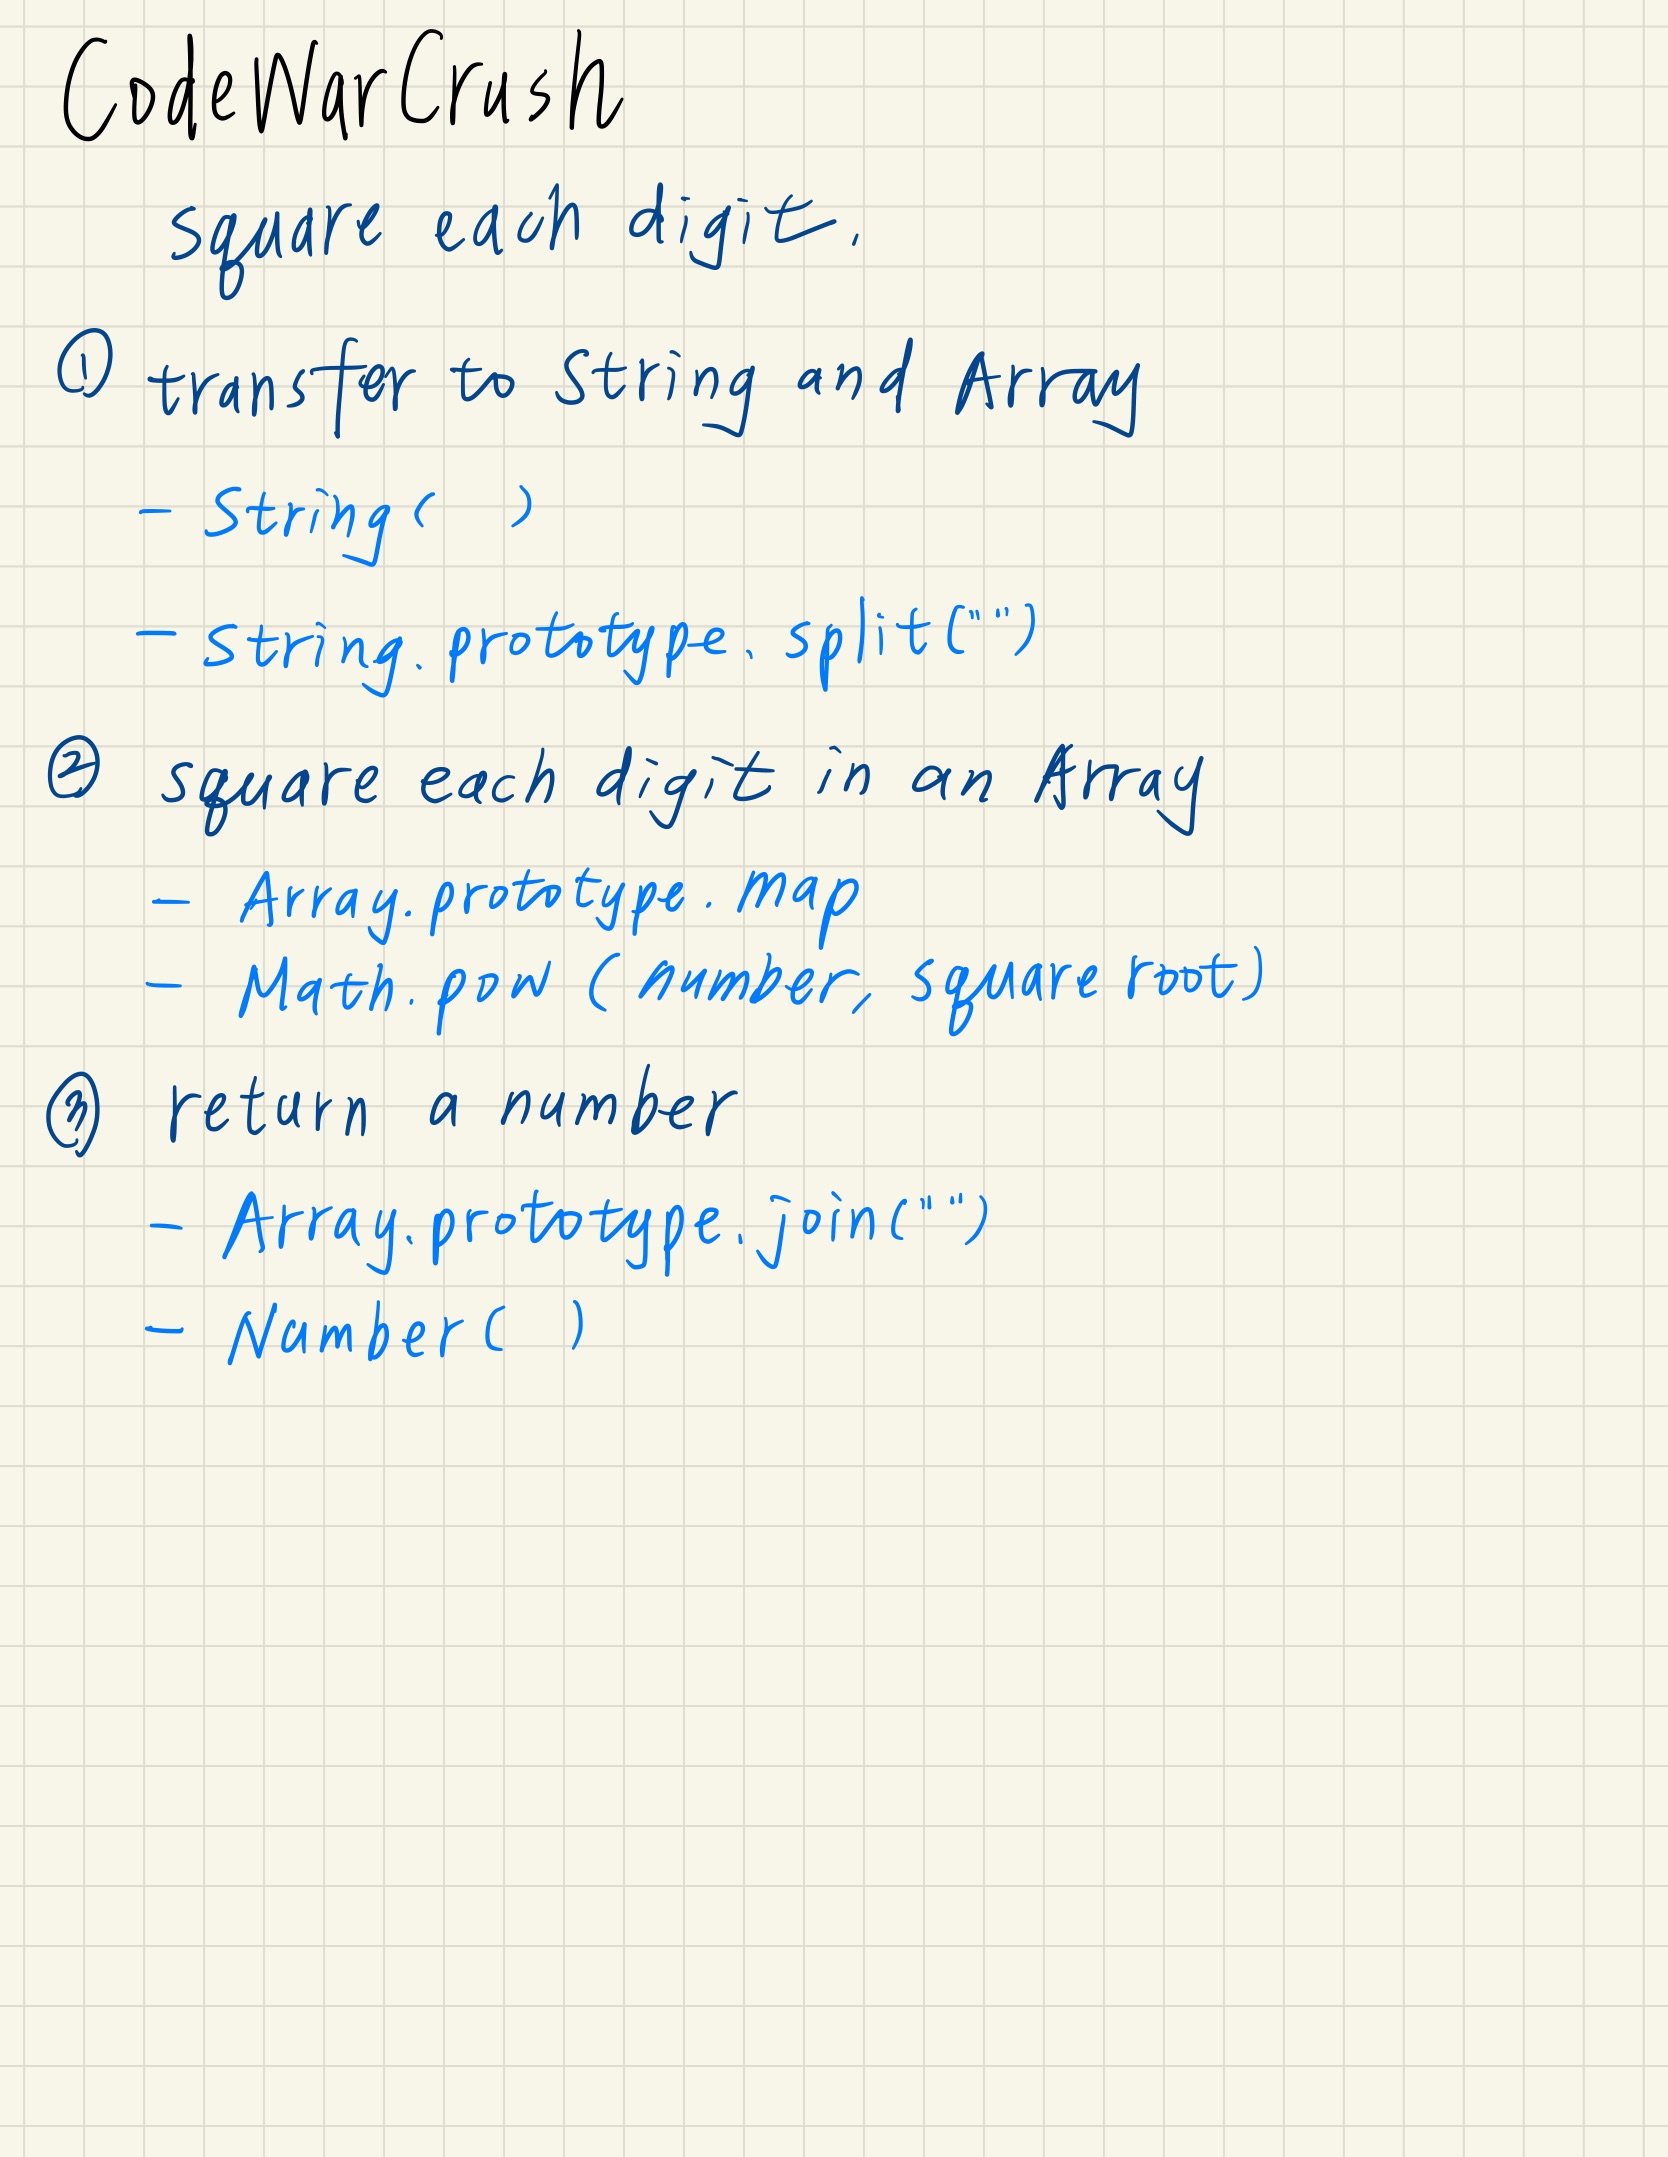 CodeWarCrush
square each digit.
① transfer to String and Array
- String( )
- String.prototype.split("")
② square each digit in an Array
- Array.prototype.map
- Math.pow (number, square root)
③ return a number
- Array.prototype.join("")
- Number( )